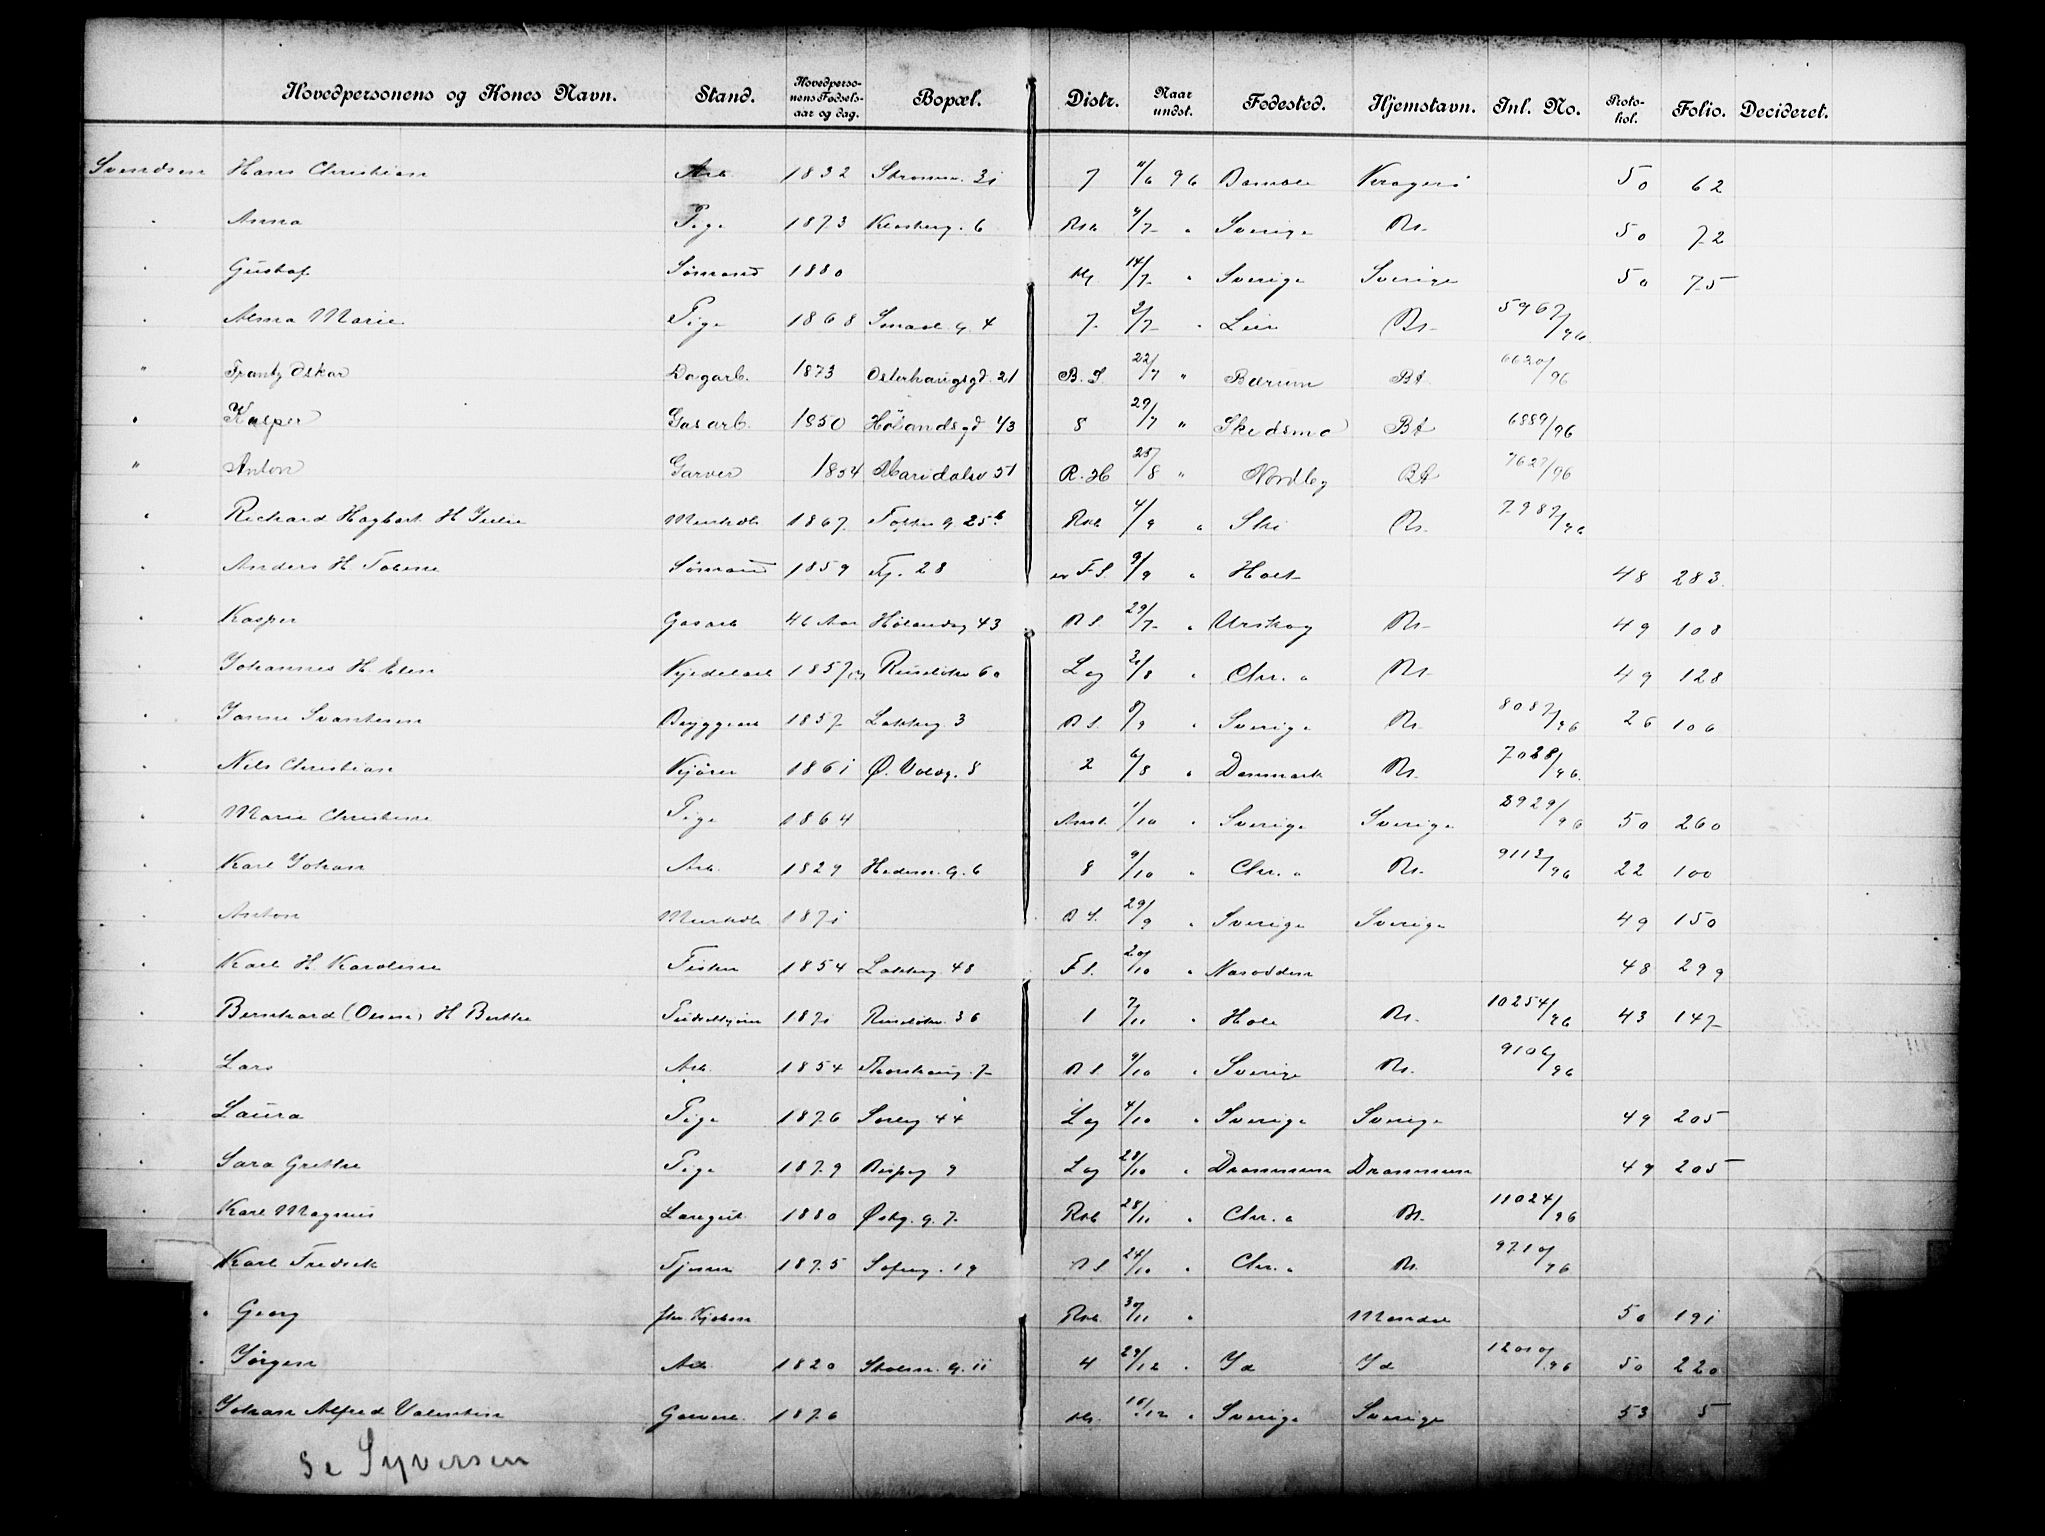 Hovedpersonens og Kones Navn. Stand. Hovedpersonens Fødselsaar og dag. Bopæl. Distr. Naar undst. Fødested. Hjemstavn. Inl. No. Protokol. Folio. Decideret.
Svendsen Hans Christian Arb 1832 Strømsv. 31 7 11/6 96 Bamble Kragerø 50 62
" Anna Pige 1873 6 4/7 " Sverige Kr. 50 72
" Gustaf Sømand 1880 14/7 " Sverige Sverige 50 75
" Alma Marie Pige 1868 Smaal g. 4 7 2/7 " Lier Kr. 5967/96
" Frantz Oskar Dagarb. 1873 Osterhausgd. 21 B. S. 22/7 " Bærum 6620/96
" Kasper Gasarb. 1850 Hølandsgd 43 8 29/7 " Skedsmo 6889/96
" Anton Garver 1854 Maridalsv 51 R. H 25/8 " Nordby 7627/96
" Richard Hagbart H Julie 1867 Tofte g. 25 b 4/9 " Ski Kr. 7987/96
" Anders H. Sømand 1859 28 F. S. 9/9 " Holt 48 283
" Kasper Gasarb 46 Aar Hølandsg 43 29/7 " Urskog Kr. 49 108
" Johannes H. Elen 1857 60 Lag 8 " Chr. a Kr. 49 128
" Janne Svantesen Bryggearb 1857 Lakkeg 3 8/9 " Sverige Kr. 8087/96 26 106
" Nils Christian Kjører 1861 Ø. Voldg. 8 2 6/8 " Danmark Kr. 7028/96
" Marie Christine Pige 1864 1/10 " Sverige Sverige 8929/96 50 260
" Karl Johan Arb. 1829 Hedem. g. 6 8 9/10 " Chr. a Kr. 9113/96 22 100
" Anton 1871 29/9 " Sverige Sverige 49 150
" Karl H. Karoline Fisker 1854 Lakkeg. 48 F. S. 20/10 " Næsodden 48 299
" Bernhard (Olsen) H Berthe 1871 36 1 7/11 " Hole Kr. 10254/96 43 147
" Lars Arb. 1854 7 9/10 " Sverige Kr. 9106/96
" Laura Pige 1876 Sorlig. 44 Lag 4/10 " Sverige Sverige 49 205
" Sara Grethe Pige 1879 9 Lag 28/10 " Drammen Drammen 49 205
" Karl Magnus Laregut 1880 g. 7 28/11 " Chr. a Kr. 11024/96
" Karl Fredrik Tjener 1875 Sofieg. 19 24/10 " Chr. a Kr. 9710/96
" Georg 30/11 " Mandal 50 191
" Jørgen Arb. 1820 g. 11 4 29/12 " Id Id 12010/96 50 220
" Johan Alfred Valentin 1876 /12 " Sverige Sverige 53 5
Se Syversen